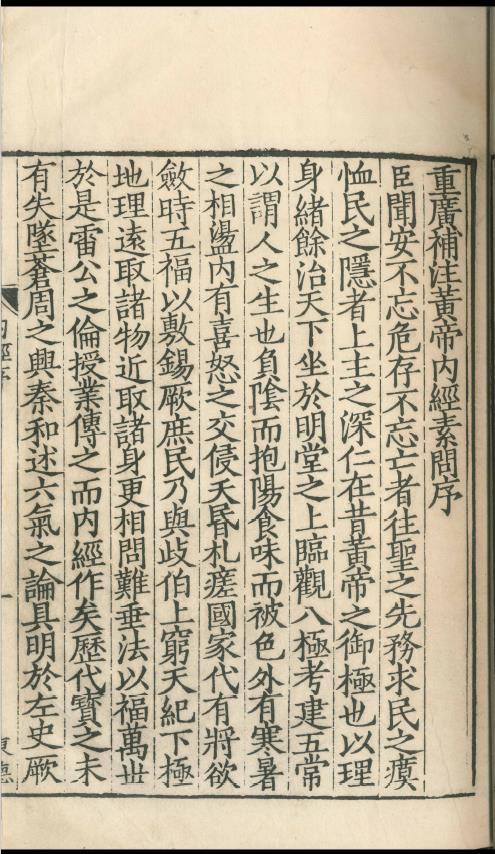 重廣補注黃帝內經素問序
臣聞安不忘危存不忘亡者往聖之先務求民之瘼
恤民之隱者上主之深仁在昔黃帝之御極也以理
身緒餘治天下坐於明堂之上臨觀八極考建五常
以謂人之生也負陰而抱陽食味而被色外有寒暑
之相盪內有喜怒之交侵夭昬札瘥國家代有將欲
斂時五福以敷錫厥庶民乃與歧伯上窮天紀下極
地理遠取諸物近取諸身更相問難垂法以福萬世
於是雷公之倫授業傳之而內經作矣歷代寶之未
有失墜蒼周之興秦和述六氣之論具明於左史厥
一